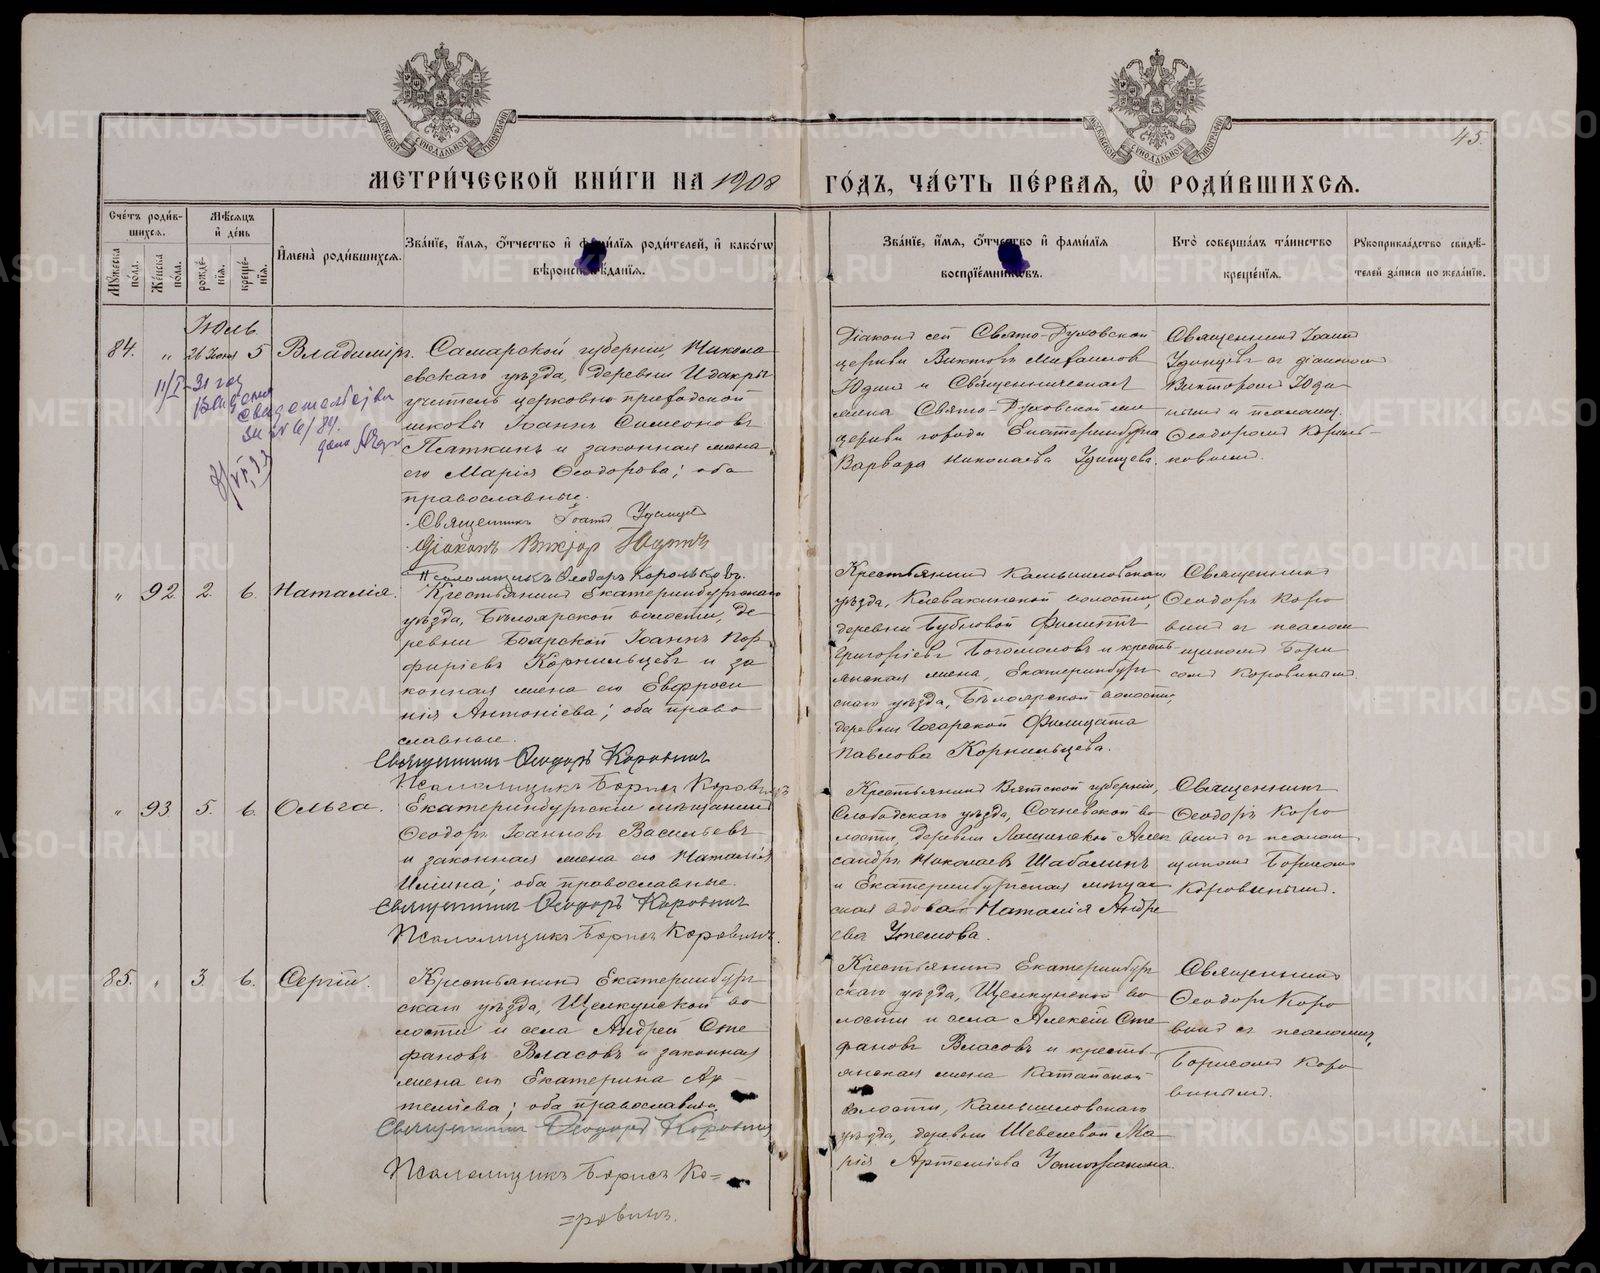 45.
МЕТРИ́ЧЕСКОЙ КНИ́ГИ НА 1908
ГО́ДЪ, ЧА́СТЬ ПЕ́РВАЯ, Ѡ РОДИ́ВШИХСЯ.
Сче́тъ роди́в-
шихся.
Мѣ́сяцъ
и҆ де́нь
Мꙋ́жеска
по́ла.
Же́нска
по́ла.
рожде́-
нїя.
креще́-
нїя.
И҆мена̀ роди́вшихся.
Зва́нїе, и҆́мя, ѻ҆́тчество и҆ фамѝлїя роди́телей, и҆ како́гѡ
вѣроисповѣ́данїя.
Зва́нїе, и҆́мя, ѻ҆́тчество и҆ фамѝлїя
воспрїе́мниковъ.
Кто̀ соверша́лъ та́инство
креще́нїя.
Рꙋкоприкла́дство свидѣ́-
телей за́писи по жела́нїю.
Іюль
84. " 26 Іюня 5 Владиміръ.
Самарской губерніи, Никола
евскаго уѣзда, деревни
учитель церковно-приходской
школы Іоаннъ Симеоновъ
Пяткинъ и законная жена
его Марія Ѳеодорова; оба
православные.
Священникъ Іоаннъ Удинцевъ
Діаконъ Викторъ Юдинъ
Псаломщикъ Ѳеодоръ Корольковъ.
Діаконъ сей Свято-Духовской
церкви Викторъ Михаиловъ
Юдинъ и Священническая
жена Свято-Духовской
церкви города Екатеринбурга
Варвара Николаева Удинцева.
Священникъ Іоаннъ
Удинцевъ съ діакономъ
Викторомъ Юди-
нымъ и псаломщ.
Ѳеодоромъ Король-
ковымъ.
11/I-31 год
свидетельство
за № 6/84.
" 92. 2. 6. Наталія.
Крестьянинъ Екатеринбургскаго
уѣзда, Бѣлоярской волости, де-
ревни Боярской Іоаннъ Пор-
фиріевъ Корнильцевъ и за
конная жена его Евфроси
нія Антоніева; оба право
славные.
Священникъ Ѳеодоръ Коровинъ
Псаломщикъ Борисъ Коровинъ
Крестьянинъ Камышловскаго
уѣзда, Клевакинской волости,
деревни Бубновой Филиппъ
Григоріевъ Богомоловъ и кресть-
янская жена, Екатеринбург
скаго уѣзда, Бѣлоярской волости,
деревни Гагарской Филицата
Павлова Корнильцева.
Священникъ
Ѳеодоръ Коро
винъ съ псалом
щикомъ Бори
сомъ Коровинымъ.
" 93. 5. 6. Ольга.
Екатеринбургскій мѣщанинъ
Ѳеодоръ Іоанновъ Васильевъ
и законная жена его Наталія
Ильина; оба православные.
Священникъ Ѳеодоръ Коровинъ
Псаломщикъ Борисъ Коровинъ.
Крестьянинъ Вятской губерніи,
Слободскаго уѣзда, Сочневской во
лости, деревни Лошинской Алек
сандръ Николаевъ Шабалинъ
и Екатеринбургская мѣщан
ская вдова Наталія Андре
ева
Священникъ
Ѳеодоръ Коро
винъ съ псалом
щикомъ Борисомъ
Коровинымъ.
85. " 3. 6. Сергій.
Крестьянинъ Екатеринбург
скаго уѣзда, Щелкунской во
лости и села Андрей Сте
фановъ Власовъ и законная
жена его Екатерина Ар-
теміева; оба православные.
Священникъ Ѳеодоръ Коровинъ
Псаломщикъ Борисъ Ко=
=ровинъ.
Крестьянинъ Екатеринбург
скаго уѣзда, Щелкунской во
лости и села Алексій Сте
фановъ Власовъ и кресть-
янская жена Катайской
волости, Камышловскаго
уѣзда, деревни Шевелевой Ма
рія Артеміева
Священникъ
Ѳеодоръ Коро
винъ съ псаломщ.
Борисомъ Коро
винымъ.
METRIKI.GASO-URAL.RU